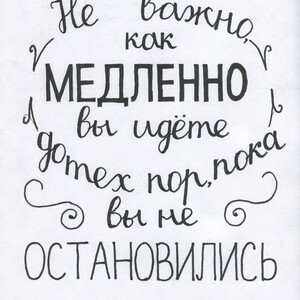 Не важно,
как
МЕДЛЕННО
вы идёте
дотех пор, пока
вы не
ОСТАНОВИЛИСЬ